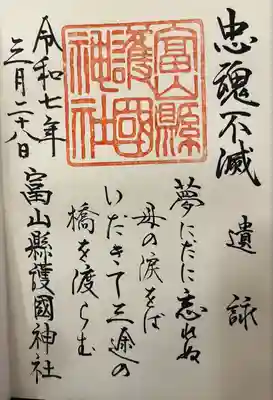 忠魂不滅
遺詠
夢にだに忘れぬ
母の涙をば
いだきて三途の
橋を渡らむ
富山縣
護國
神社
富山縣護國神社
令和七年
三月二十八日